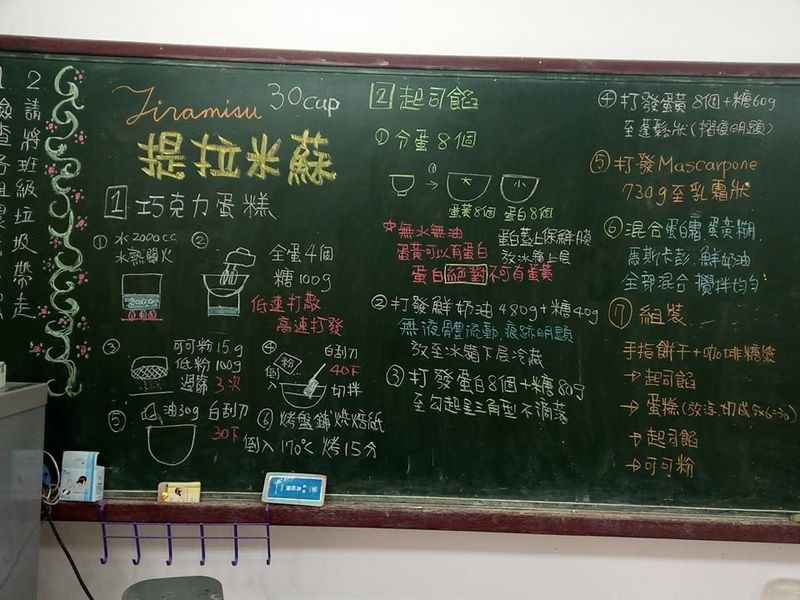 2.
請將班級垃圾帶走
Tiramisu 30cup
提拉米蘇
1 巧克力蛋糕
① 水2000cc
水熱關火
②
全蛋4個
糖100g
低速打散
高速打發
③
可可粉15g
低粉100g
過篩3次
④
粉
倒入
白刮刀
40下
切拌
⑤
油30g 白刮刀
30下
⑥ 烤盤鋪烘焙紙
倒入170℃ 烤15分
2 起司餡
① 分蛋8個
大
小
蛋黃8個 蛋白8個
無水無油
蛋黃可以有蛋白
蛋白絕對不可有蛋黃
蛋白蓋上保鮮膜
放冰箱上層
② 打發鮮奶油480g+糖40g
無液體流動,痕跡明顯
放至冰箱下層冷藏
③ 打發蛋白8個+糖80g
至勾起呈三角型不滴落
④ 打發蛋黃8個+糖60g
至蓬鬆狀(摺痕明顯)
⑤ 打發Mascarpone
730g至乳霜狀
⑥ 混合蛋白霜 蛋黃糊.
馬斯卡彭.鮮奶油
全部混合 攪拌均勻
⑦ 組裝
手指餅干+咖啡糖漿
→起司餡
→蛋糕(放涼.切成5x6=30)
→起司餡
→可可粉